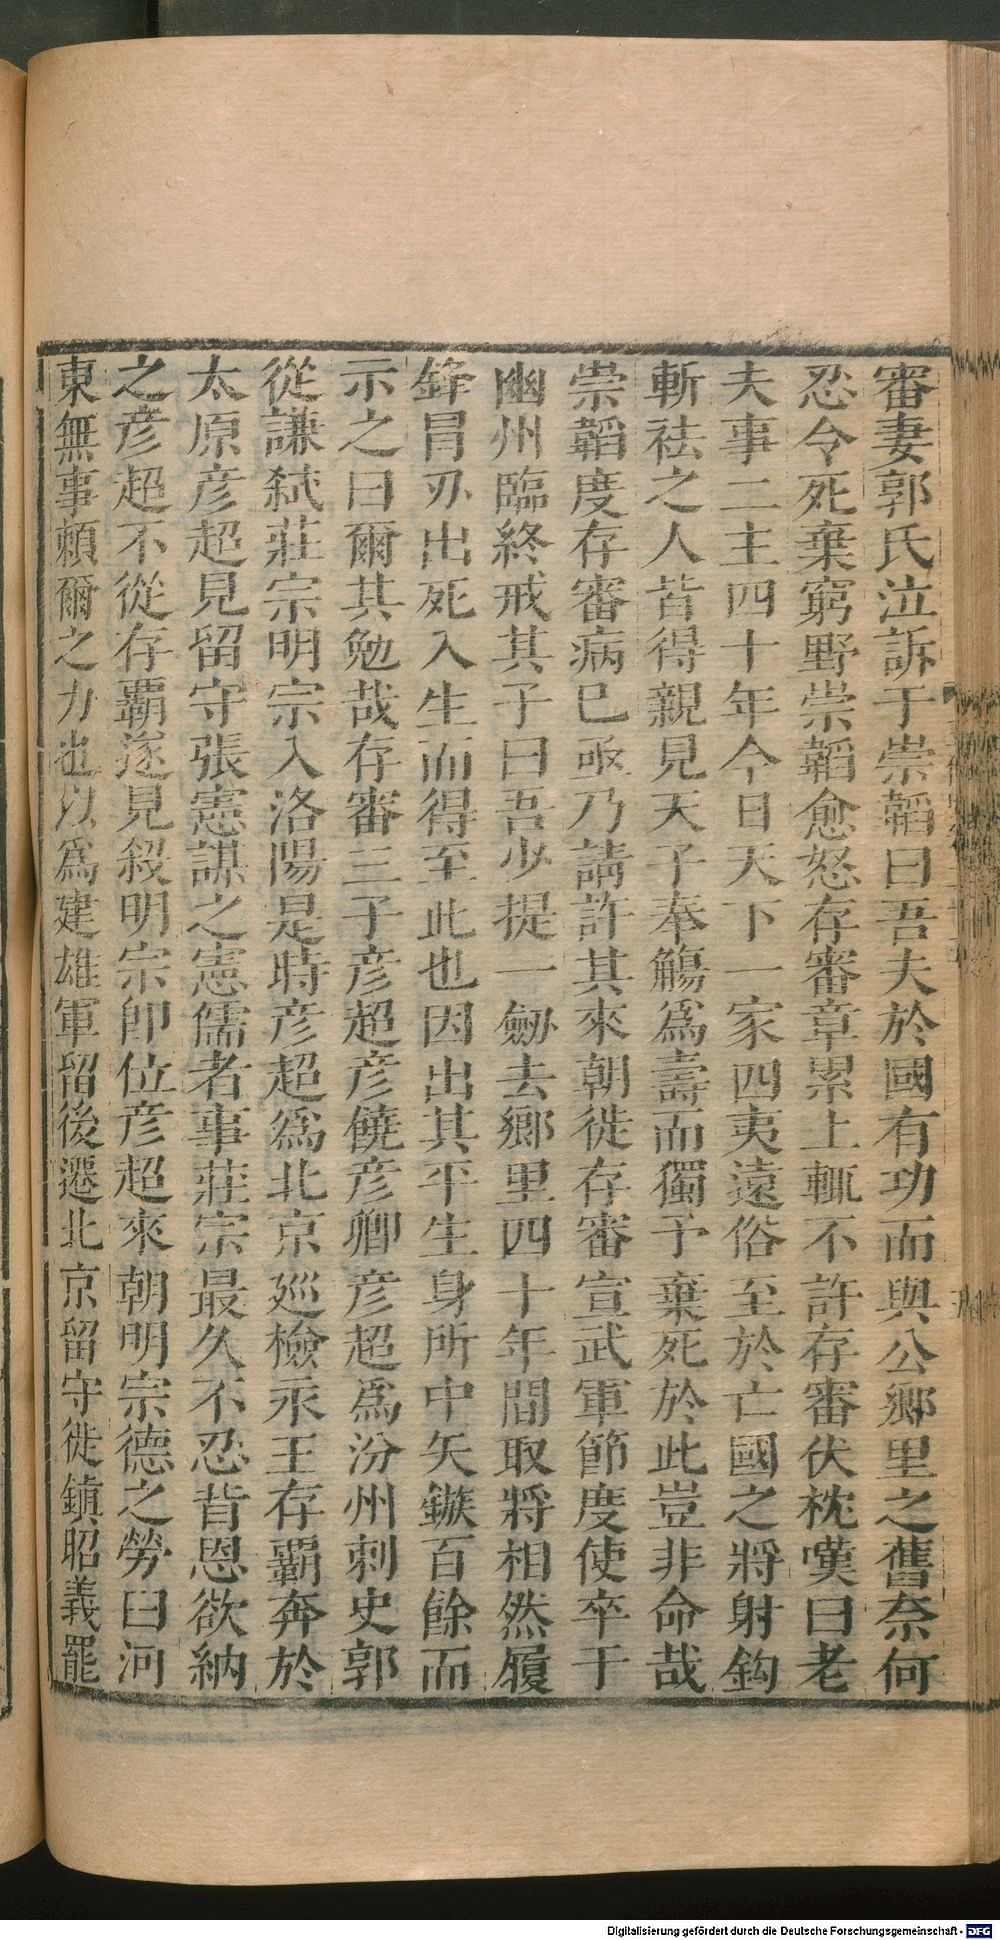 審妻郭氏泣訴于崇韜曰吾夫於國有功而與公鄉里之舊奈何
忍令死棄窮野崇韜愈怒存審章累上輒不許存審伏枕嘆曰老
夫事二主四十年今日天下一家四夷遠俗至於亡國之將射鈎
斬袪之人皆得親見天子奉觴爲壽而獨予棄死於此豈非命哉
崇韜度存審病已亟乃請許其來朝徙存審宣武軍節度使卒于
幽州臨終戒其子曰吾少提一劒去鄉里四十年間取將相然履
鋒冒刃出死入生而得至此也因出其平生身所中矢鏃百餘而
示之曰爾其勉哉存審三子彦超彦饒彦卿彦超爲汾州刺史郭
從謙弒莊宗明宗入洛陽是時彦超爲北京廵檢永王存霸奔於
太原彦超見留守張憲謀之憲儒者事莊宗最久不忍背恩欲納
之彦超不從存覇遂見殺明宗即位彦超來朝明宗德之勞曰河
東無事賴爾之力也以爲建雄軍留後遷北京留守徙鎮昭義罷
Digitalisierung gefördert durch die Deutsche Forschungsgemeinschaft - DFG